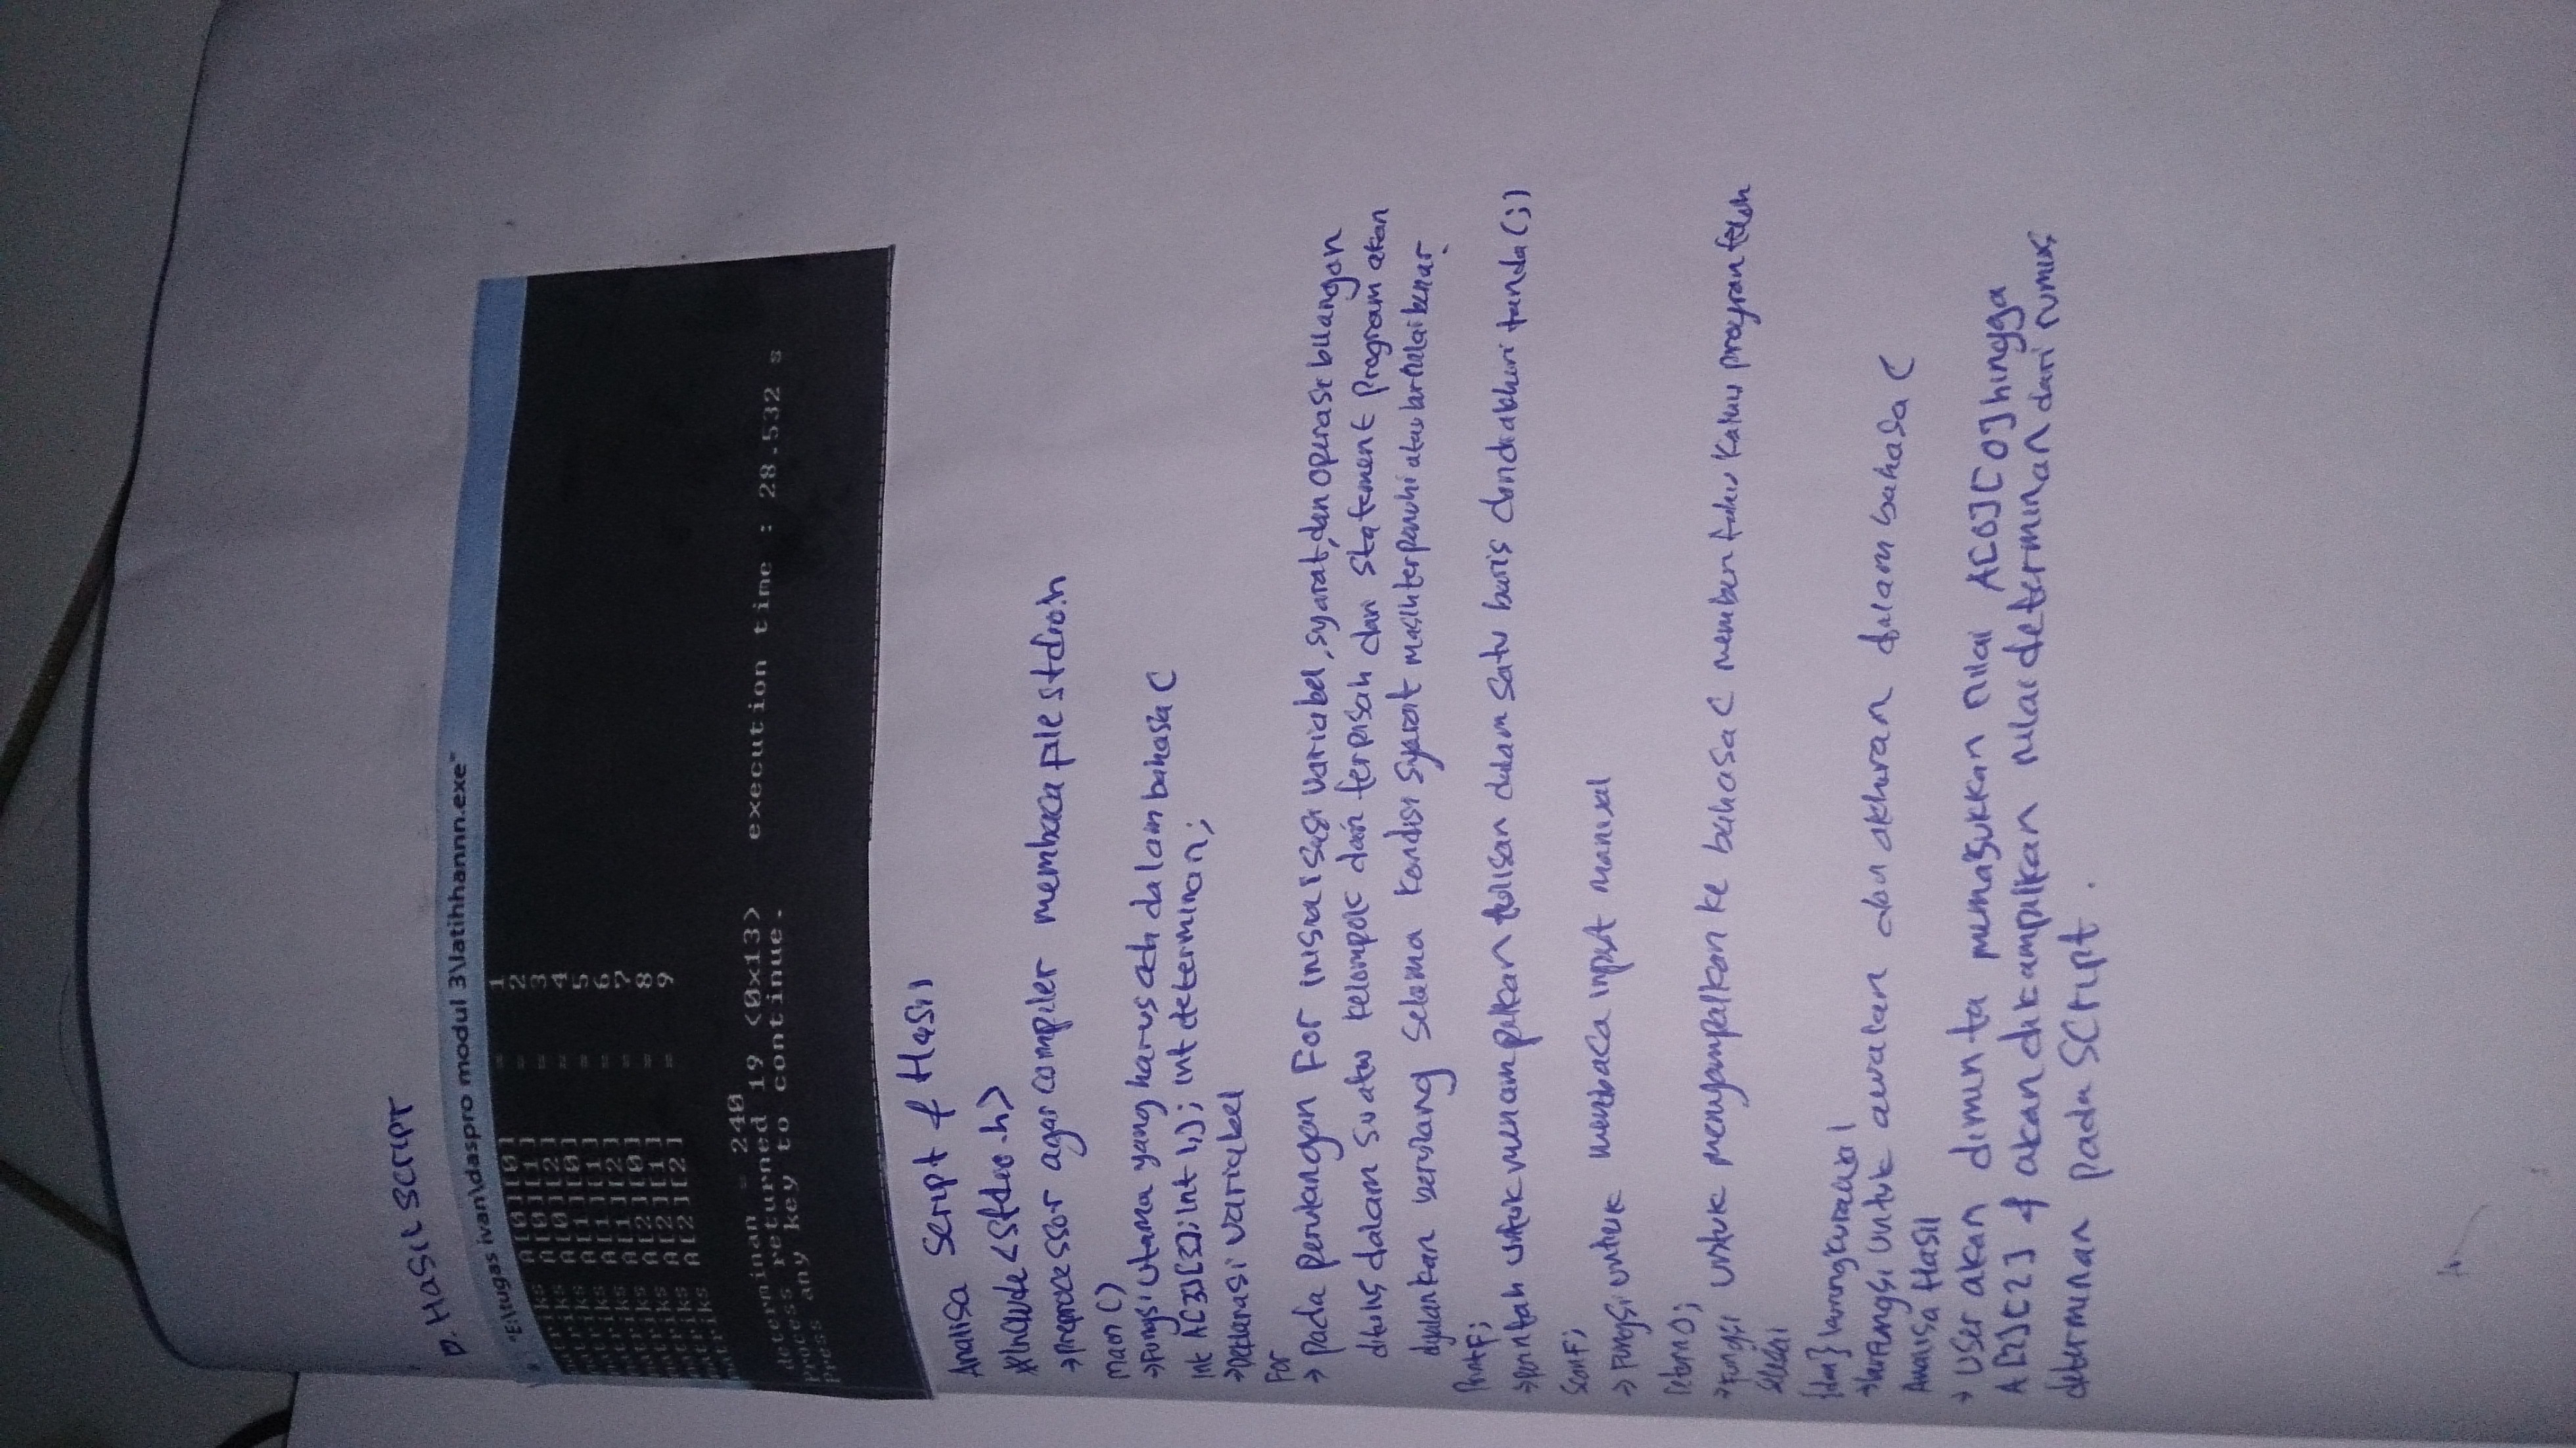 D. Hasil Script
"E:\tugas ivan\daspro modul 3\latihhannn.exe"
matriks A[0][0] = 1
matriks A[0][1] = 2
matriks A[0][2] = 3
matriks A[1][0] = 4
matriks A[1][1] = 5
matriks A[1][2] = 6
matriks A[2][0] = 7
matriks A[2][1] = 8
matriks A[2][2] = 9
determinan = 240
Process returned 19 (0x13) execution time : 28.532 s
Press any key to continue.
Analisa Script & Hasil
#Include <stdio.h>
→ preprocessor agar compiler membaca file stdio.h
main ()
→ Fungsi utama yang harus ada dalam bahasa C
int A[3][3]; int b; int determinan;
→ Deklarasi variabel
For
→ Pada perulangan For inisialisasi variabel, syarat, dan operasi bilangan
ditulis dalam suatu kelompok dan terpisah dari statement program akan
dijalankan berulang selama kondisi syarat masih terpenuhi atau bernilai benar
Printf;
→ perintah untuk menampilkan tulisan dalam satu baris dan diakhiri tanda (;)
Scanf;
→ Fungsi untuk membaca input manual
return 0;
→ Fungsi untuk menyampaikan ke bahasa C memberi tahu kalau program telah
selesai
{dan} kurung kurawal
→ berfungsi untuk awalan dan akhiran dalam bahasa C
Analisa Hasil
→ User akan diminta memasukkan nilai A[0][0] hingga
A[2][2] & akan ditampilkan nilai determinan dari rumus
determinan pada script.